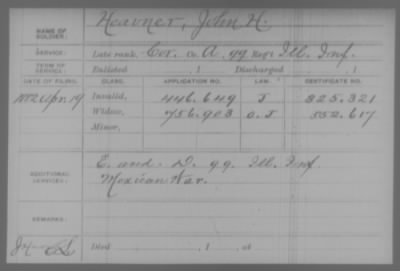 NAME OF SOLDIER: Heavner, John H.
SERVICE: Late rank, Cor. Co. A, 99 Reg't Ill. Inf.
TERM OF SERVICE: Enlisted , 1 Discharged , 1
DATE OF FILING. CLASS. APPLICATION NO. LAW. CERTIFICATE NO.
1882 Apr. 19 Invalid, 446.649 J 325.321
Widow, 756.903 O.J 552.617
Minor,
ADDITIONAL SERVICES: E and D. 99. Ill. Inf.
Mexican War.
REMARKS:
Died , 1 , at